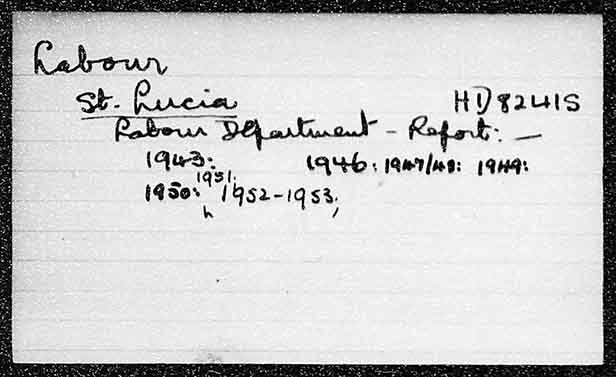 Labour
St. Lucia HD8241S
Labour Department - Report: —
1943: 1946: 1947/48: 1949:
1951:
1950: 1952-1953;